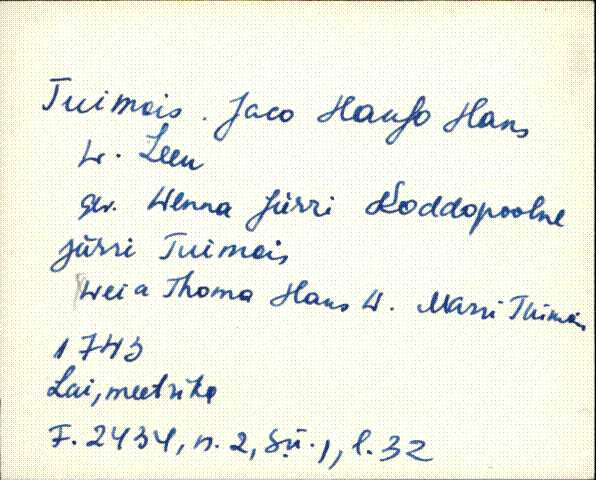 Tuimois. Jaco Hanso Hans
W. Leen
Gev. Wenna Jürri Koddopoolne
Jürri Tuimois
Weia Thoma Hans W. Marri Tuimois
1743
Lai, meetrika
F. 2434, n. 2, sü. 1, l. 32